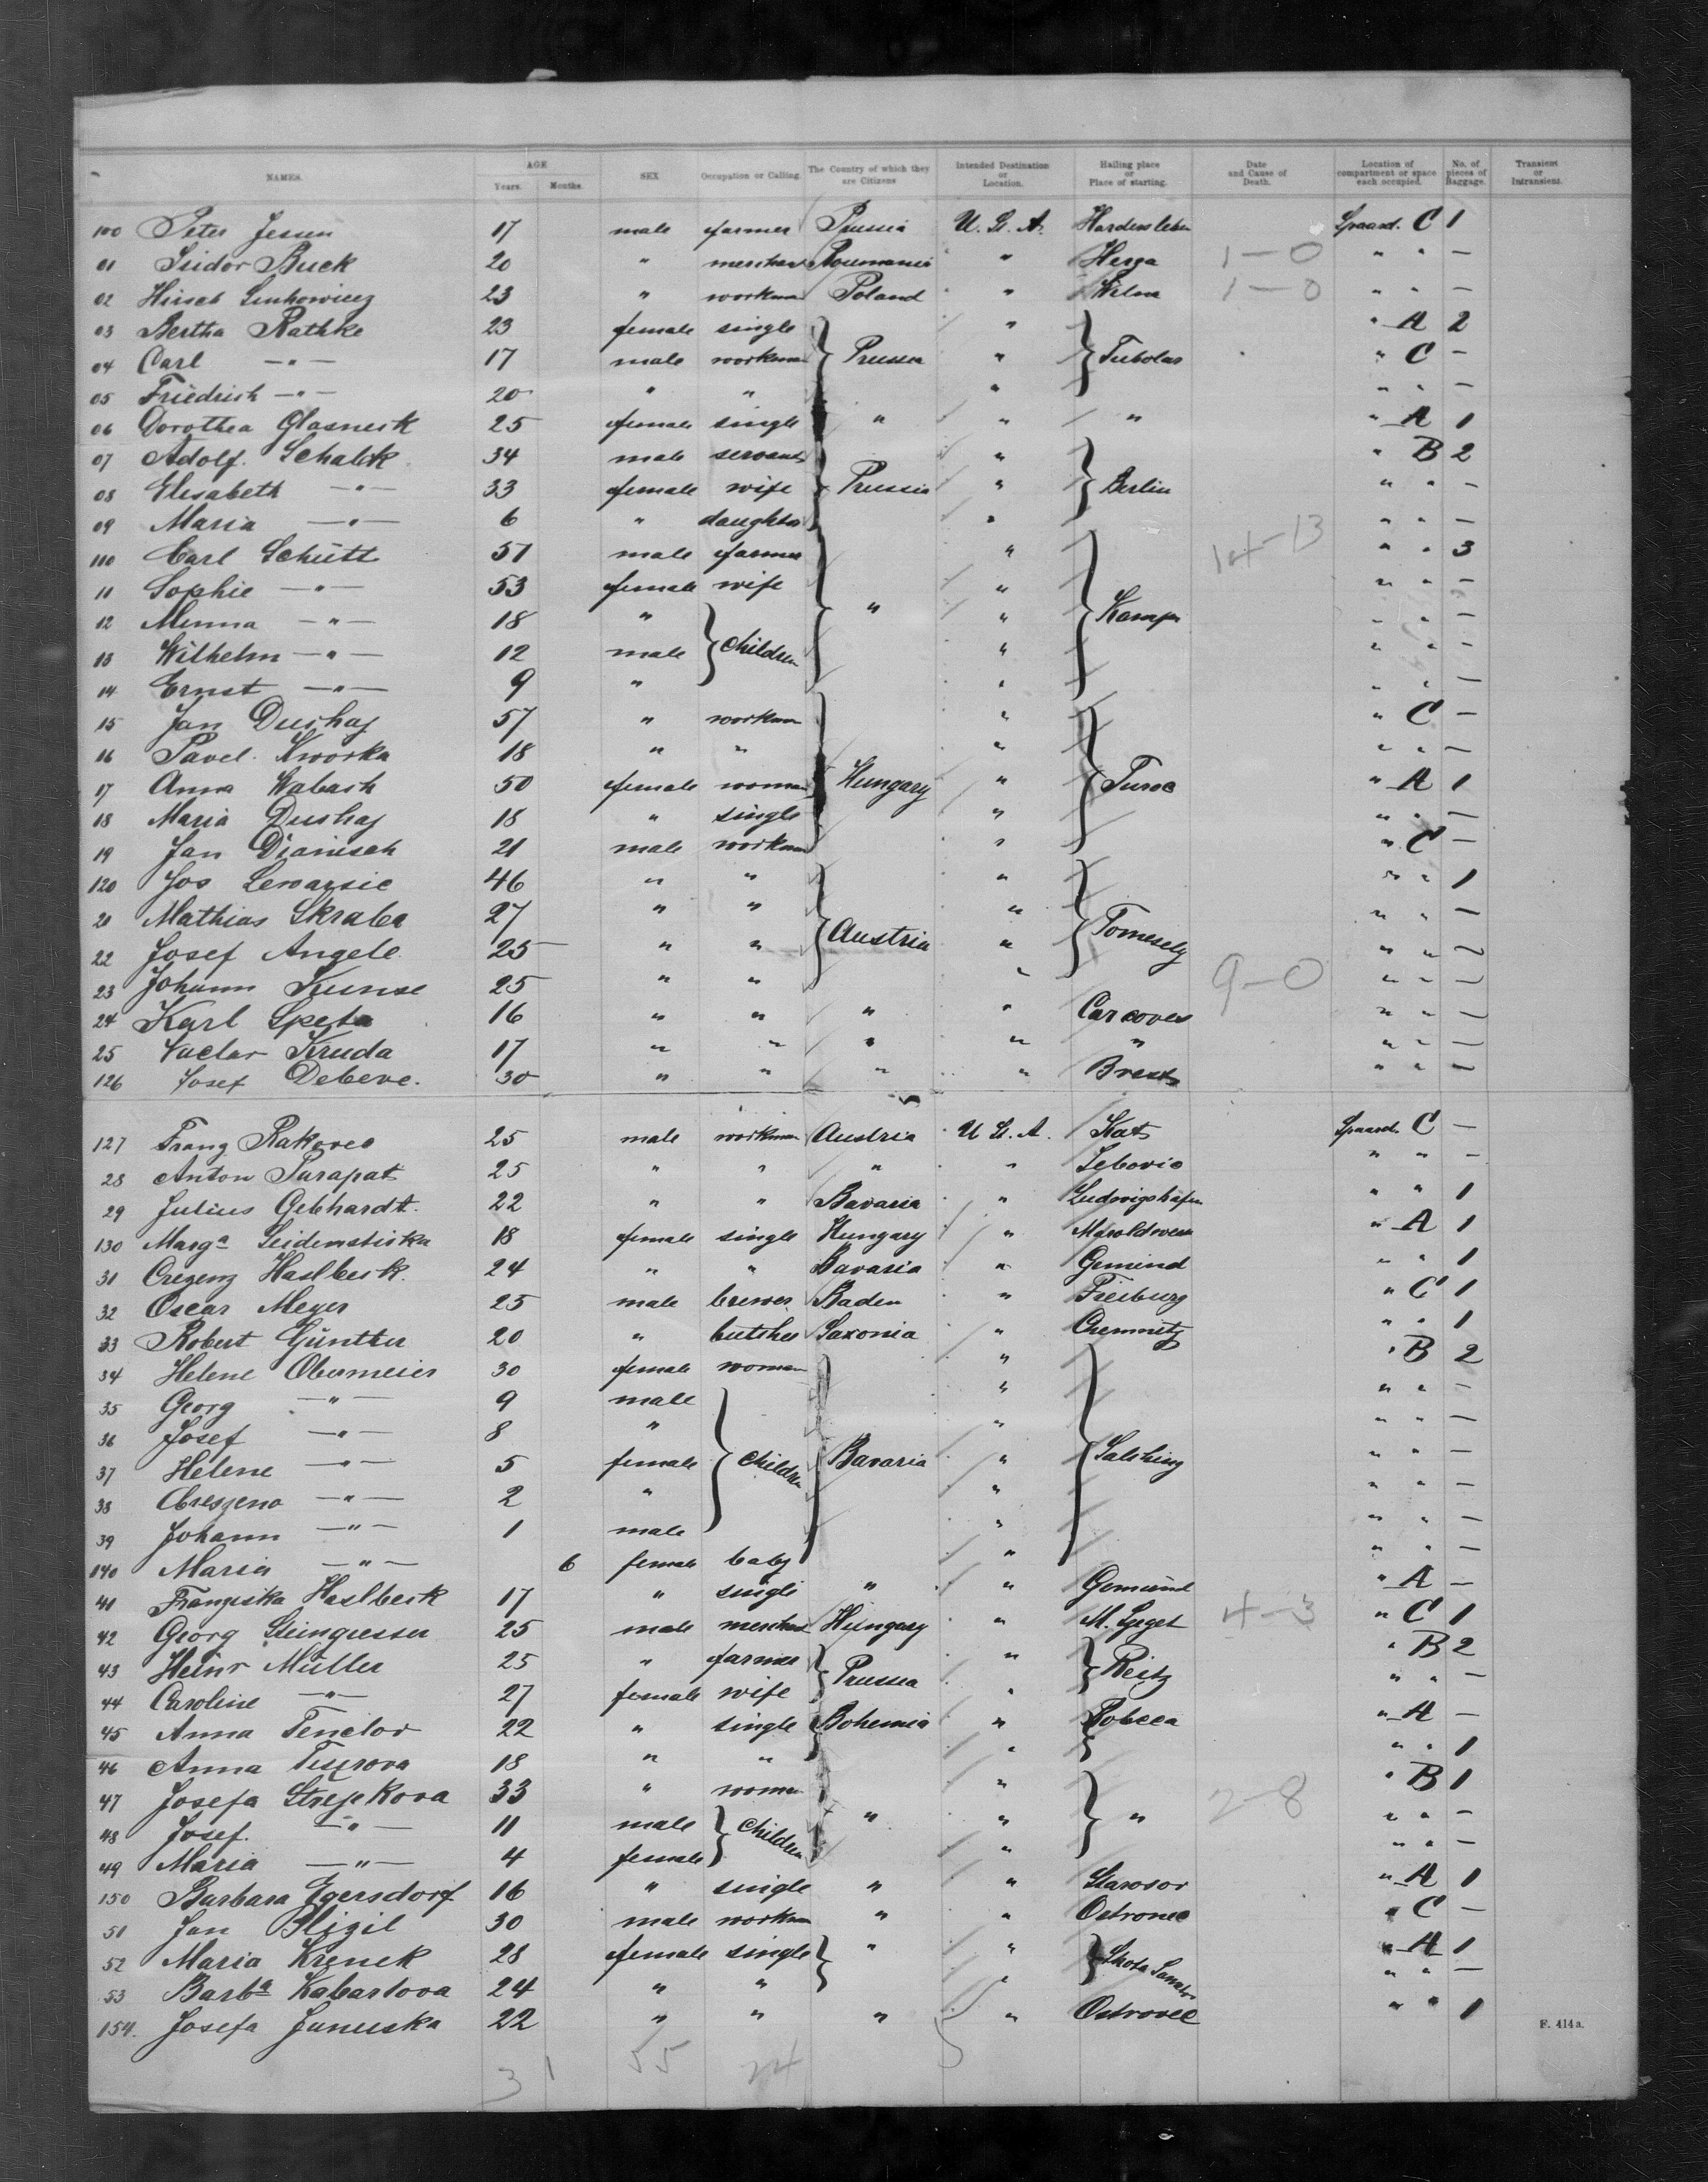 NAMES. AGE Years. Months. SEX Occupation or Calling. The Country of which they are Citizens Intended Destination or Location. Hailing place or Place of starting. Date and Cause of Death. Location of compartment or space each occupied. No. of pieces of Baggage. Transient or Intransient.
100 Peter Jessen 17 male farmer Prussia U. S. A. Hardersleben C 1
01 Isidor Buck 20 " merchant Roumania " Herza 1-0 " " —
02 Hirsch 23 " workman Poland " Wilna 1-0 " " —
03 Bertha Rathke 23 female single " " A 2
04 Carl —"— 17 male workman Prussia " " C —
05 Friedrich —"— 20 " " " " " —
06 Dorothea Glasneck 25 female single " " " " A 1
07 Adolf Schalik 34 male servant " " B 2
08 Elisabeth —"— 33 female wife Prussia " Berlin " " —
09 Maria —"— 6 " daughter " " " —
110 Carl Schütt 51 male farmer " 14-13 " " 3
11 Sophie —"— 53 female wife " " " —
12 Minna —"— 18 " " " Kamp " " —
13 Wilhelm —"— 12 male Children " " " —
14 Ernst —"— 9 " " " " —
15 Jan Dushaj 57 " workman " " C —
16 Pavel Kworka 18 " " " " " —
17 Anna Wabash 50 female woman Hungary " Turoc " A 1
18 Maria Dushaj 18 " single " " " —
19 Jan Dianisch 21 male workman " " C —
120 Jos 46 " " " " " 1
21 Mathias Skraba 27 " " " " " —
22 Josef Angele 25 " " Austria " " " —
23 Johann Kunse 25 " " " 9-0 " " —
24 Karl Speta 16 " " " " " " —
25 Vaclav Kruda 17 " " " " " " " —
126 Josef Debevc. 30 " " " " " " —
127 Franz Rakovec 25 male workman Austria U. S. A. C —
28 Anton Parapat 25 " " " " " " —
29 Julius Gebhardt 22 " " Bavaria " Ludwigshafen " " 1
130 Marga 18 female single Hungary " " A 1
31 Crezenz Haslbeck 24 " " Bavaria " Gemünd " " 1
32 Oscar Meyer 25 male brewer Baden " Freiburg " C 1
33 Robert Günther 20 " butcher Saxonia " Chemnitz " " 1
34 Helene Obermeier 30 female woman " " B 2
35 Georg —"— 9 male " " " —
36 Josef —"— 8 " " " " —
37 Helene —"— 5 female Children Bavaria " " " —
38 Creszena —"— 2 " " " " —
39 Johann —"— 1 male " " " —
140 Maria —"— 6 female baby " " " —
41 Franziska Haslbeck 17 " single " " Gemünd " A —
42 Georg 25 male merchant Hungary " 4-3 " C 1
43 Heinr Müller 25 " farmer " " B 2
44 Caroline —"— 27 female wife Prussia " Reitz " " —
45 Anna 22 " single Bohemia " " A —
46 Anna 18 " " " " " 1
47 Josefa 33 " woman " 2-8 " B 1
48 Josef —"— 11 male Children " " " " " —
49 Maria —"— 4 female " " " —
150 Barbara Egersdorf 16 " single " " " A 1
51 Jan 30 male workman " " " C —
52 Maria Krenek 28 female single " " " A 1
53 Barba Kabartova 24 " " " " " —
154. Josefa Januska 22 " " " " Ostrovec " " 1
F. 414a.
3 1 55 24